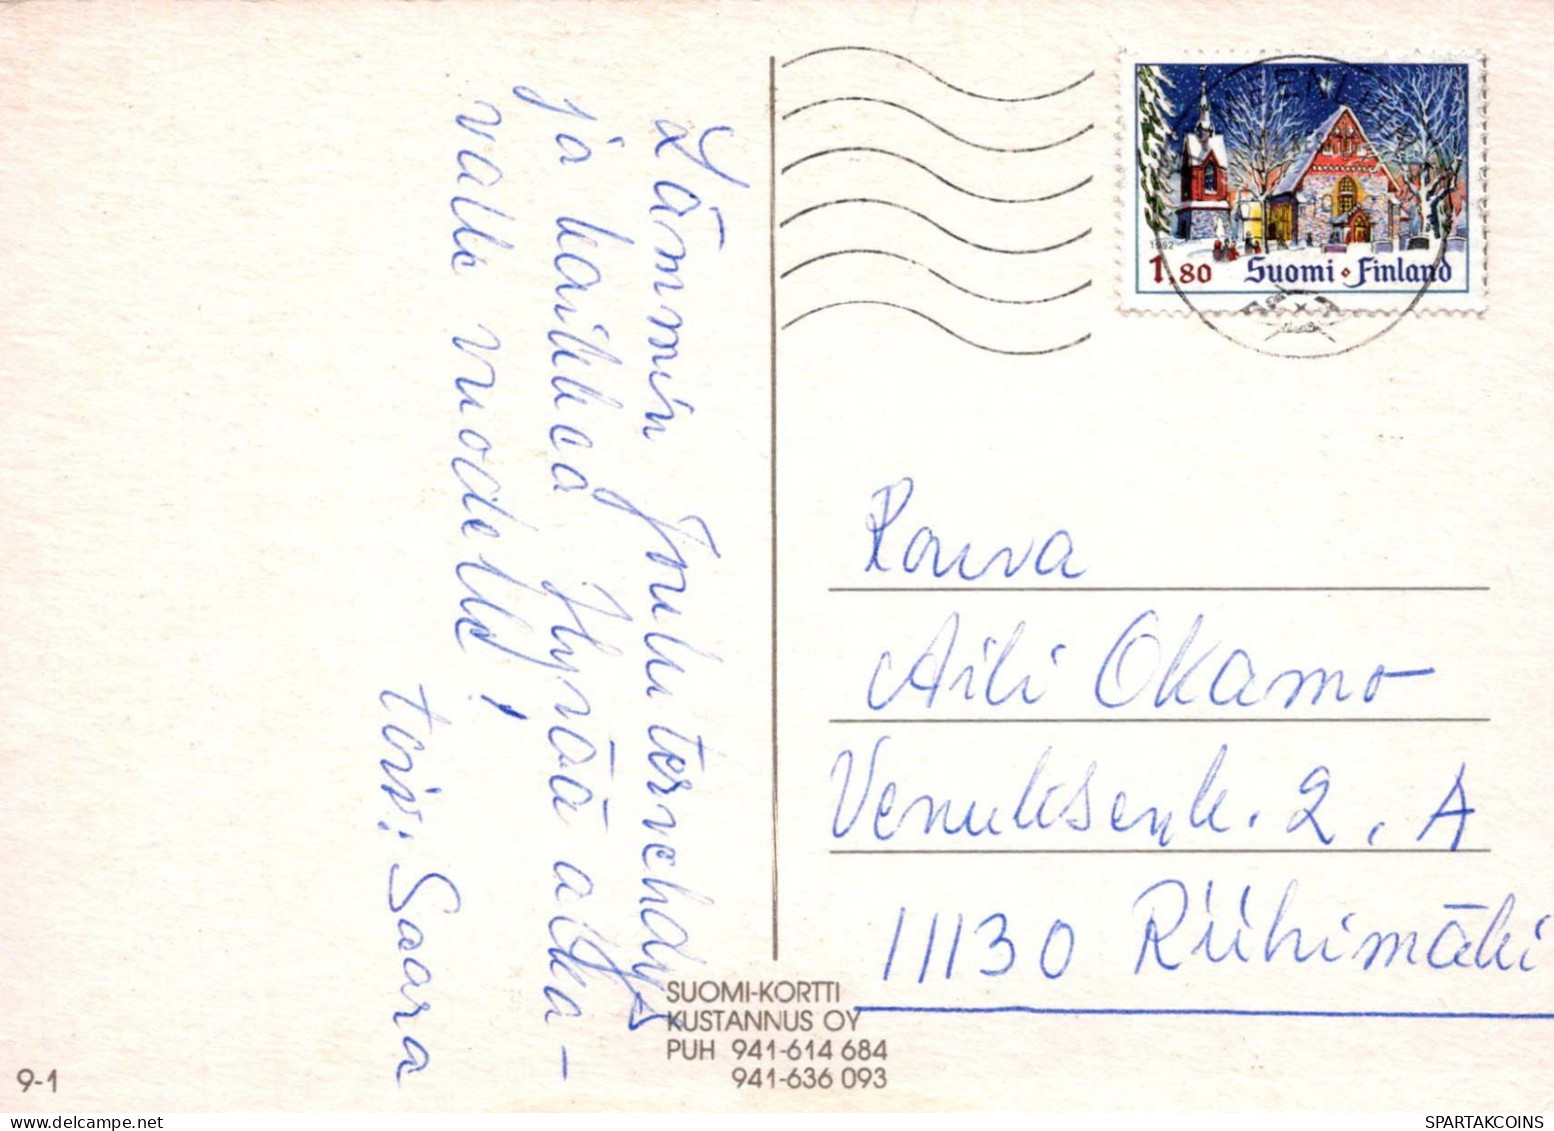 Lämmin Joulutervehdys
ja kaikkea Hyvää alka-
valle vuodelle!
toiv: Saara
1992
1.80 Suomi Finland
Rouva
Aili Okamo
Venuksenk. 2. A
11130 Riihimäki
SUOMI-KORTTI
KUSTANNUS OY
PUH 941-614 684
941-636 093
9-1
SPARTAKCOINS